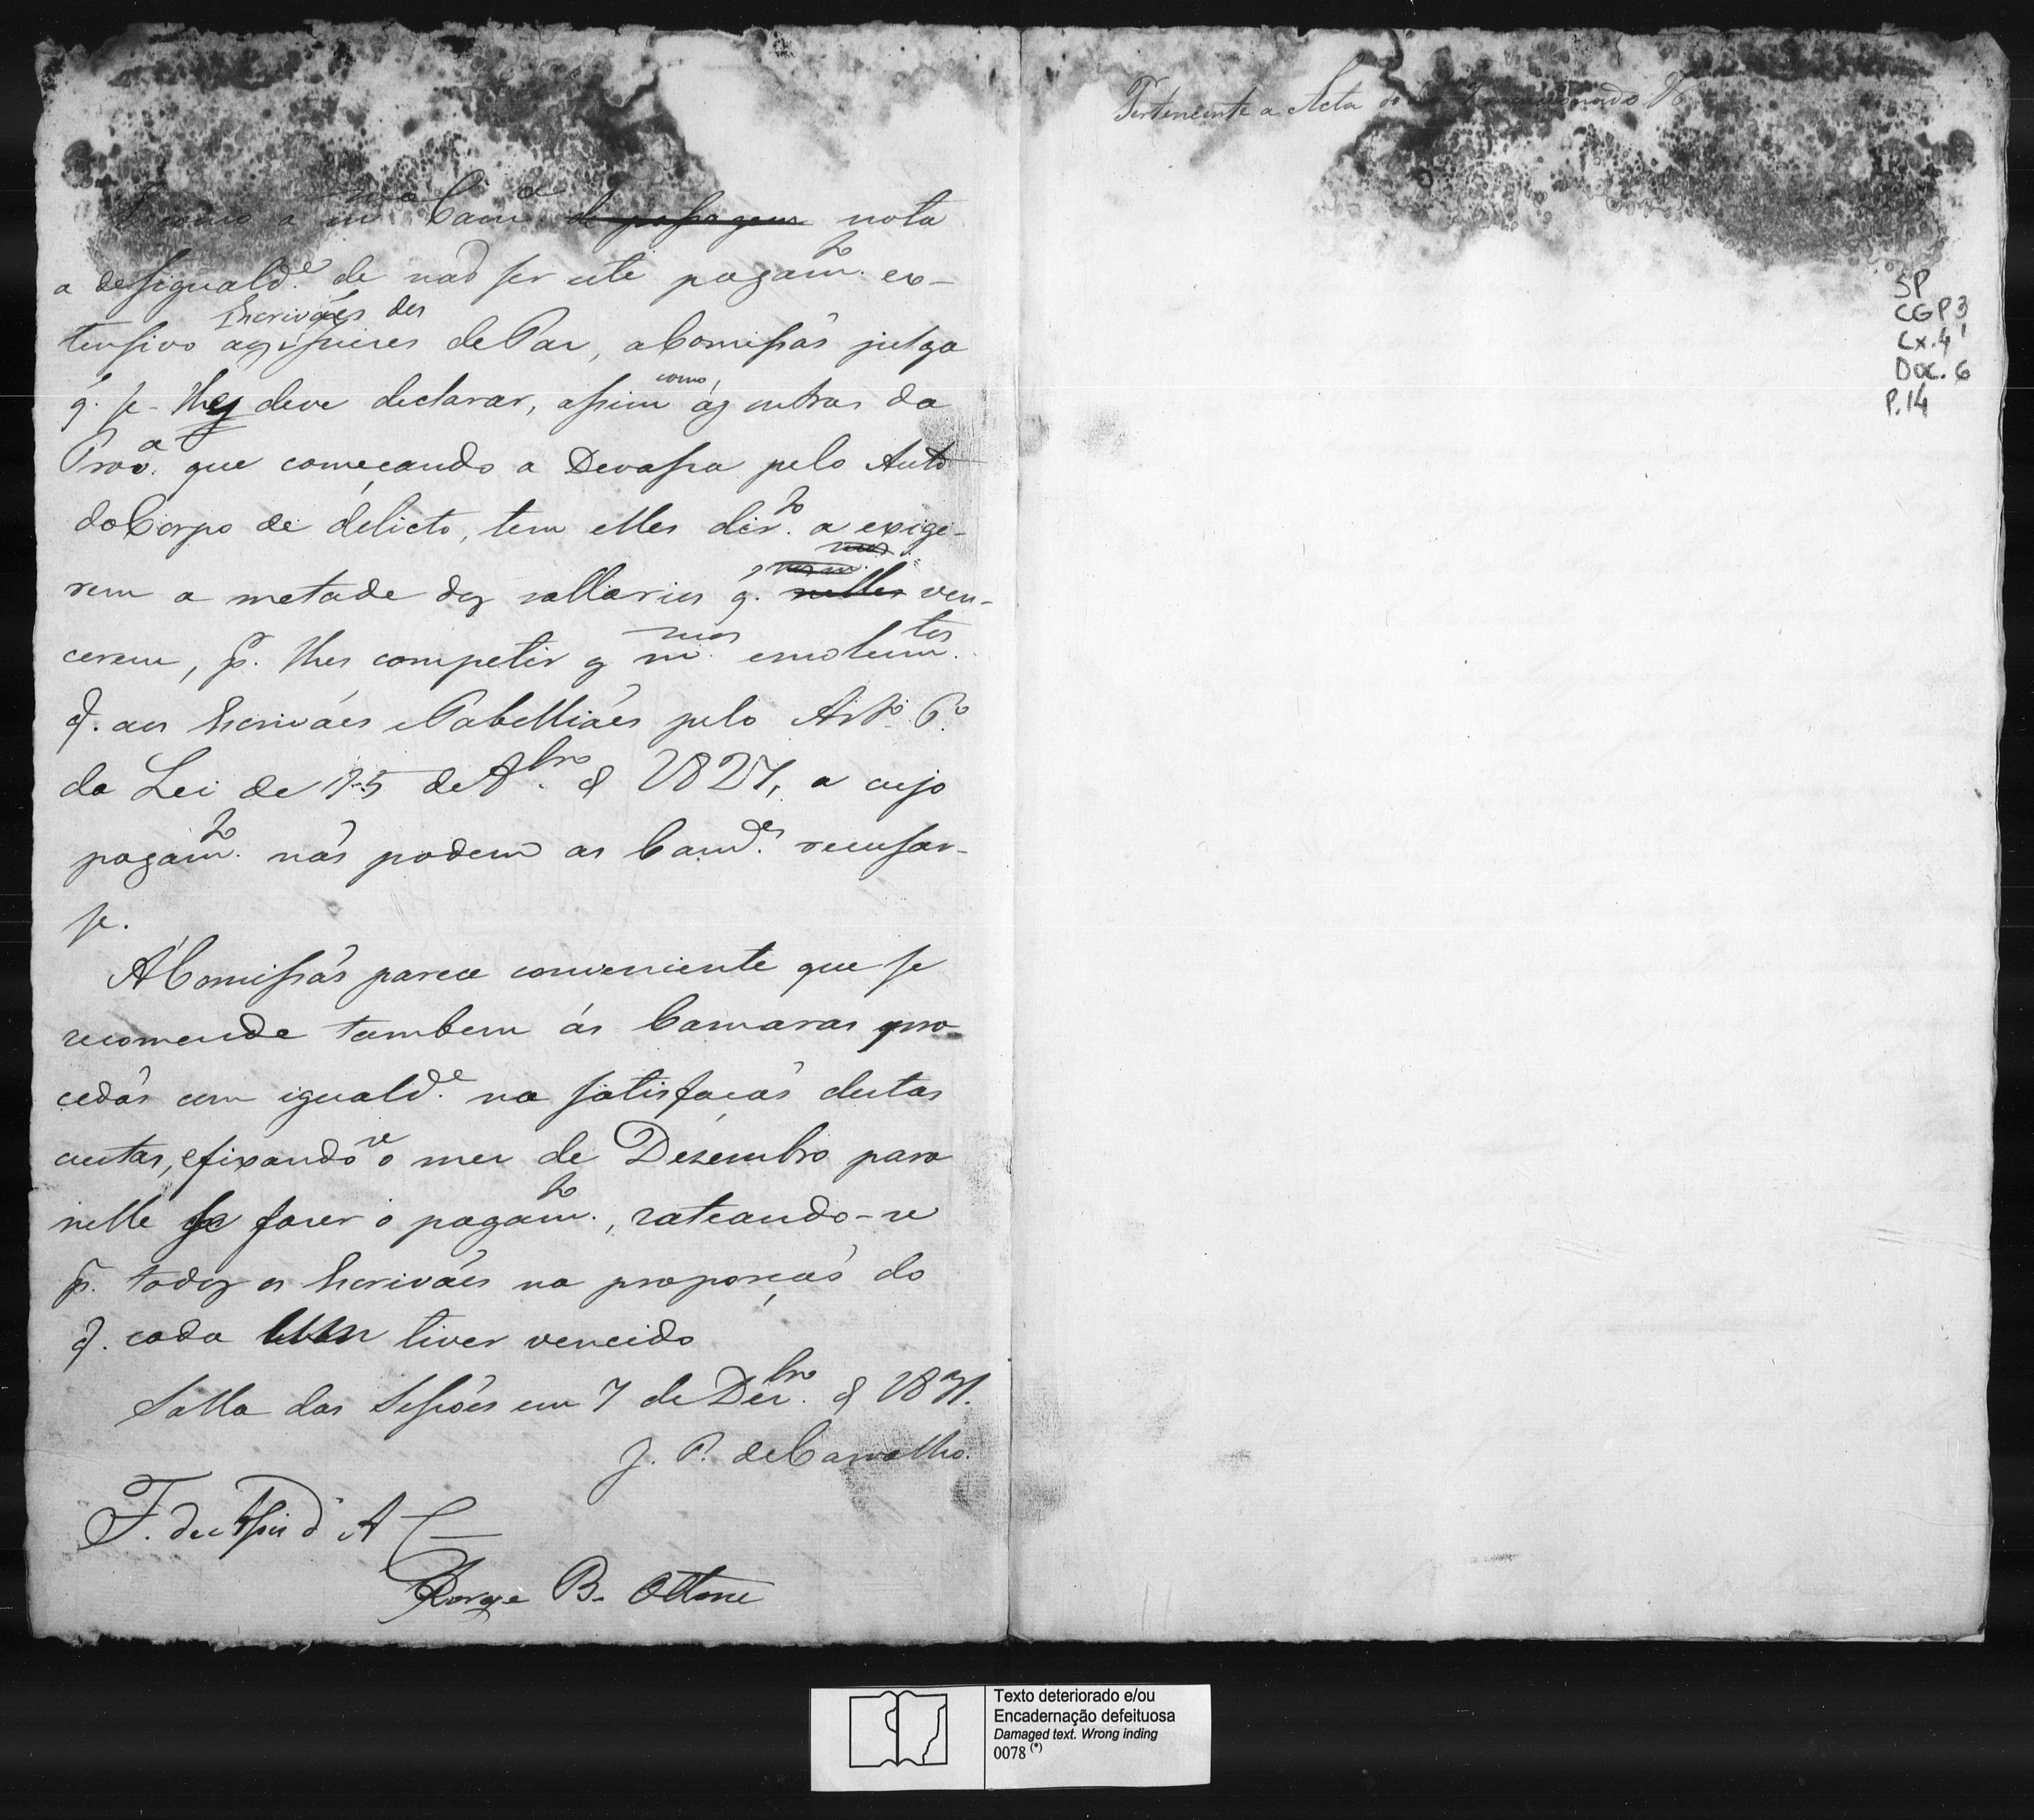 como a m.ma Cam.a de passagem nota
a desiguald.e de não ser este pagam.to ex-
tensivo aos Escrivães dos Juizes de Paz, a Comissão julga
q. se lhes deve declarar, assim como, ás outras da
Prov.a que começando a Devassa pelo Auto
do Corpo de delicto, tem elles dir.to a exigi-
rem a metade dos sallarios q. nelles ven-
cerem, p.r lhes competir os m.mos emolum.tos
q. aos Escrivães e Tabelliães pelo Art.o 6.o
da Lei de 15 de 8.bro de 1827, a cujo
pagam.to não podem as Cam.es recusar-
se.
Á Comissão parece conveniente que se
recomende tambem ás Camaras pro-
cedão com iguald.e na satisfação destas
custas, e fixando-se o mez de Desembro para
nelle se fazer o pagam.to, rateando-se
p.r todos os Escrivães na proporção do
q. cada hum tiver vencido
Salla das Sessões em 7 de Dez.bro de 1831.
J. P. de Carvalho.
F. de Assis d' A
Jorge B. Ottone
Pertencente a Acta
SP
CGP3
Cx.4
Doc. 6
P.14
Texto deteriorado e/ou
Encadernação defeituosa
Damaged text. Wrong inding
0078 (*)